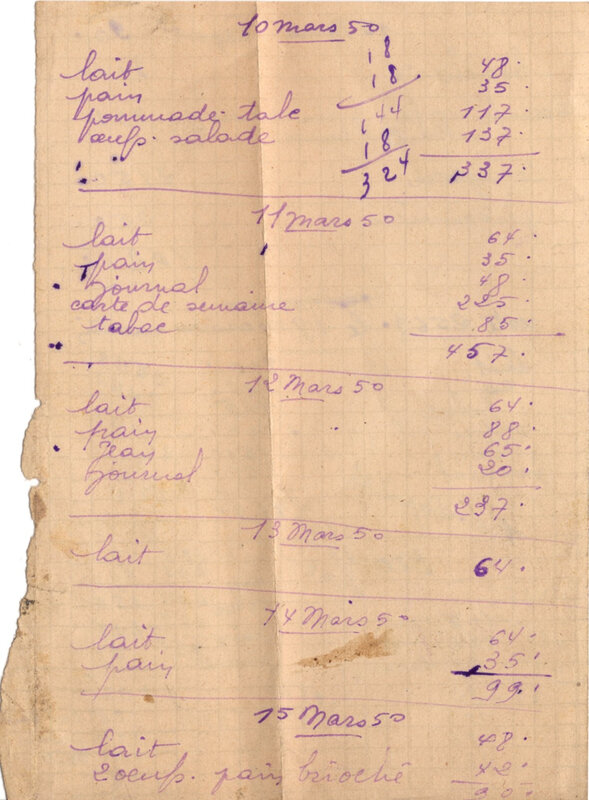 10 Mars 50
18
lait 48.
18
pain 35
pommade. talc 144 117
œufs. salade 137.
18
324 337.
11 Mars 50
lait 64.
pain 35.
journal 48.
carte de semaine 225.
tabac 85.
457.
12 Mars 50
lait 64.
pain 88.
Jean 65.
journal 20.
237.
13 Mars 50
lait 64.
14 Mars 50
lait 64.
pain 35.
99.
15 Mars 50
lait 48.
2 œufs. pain brioché 42.
90.